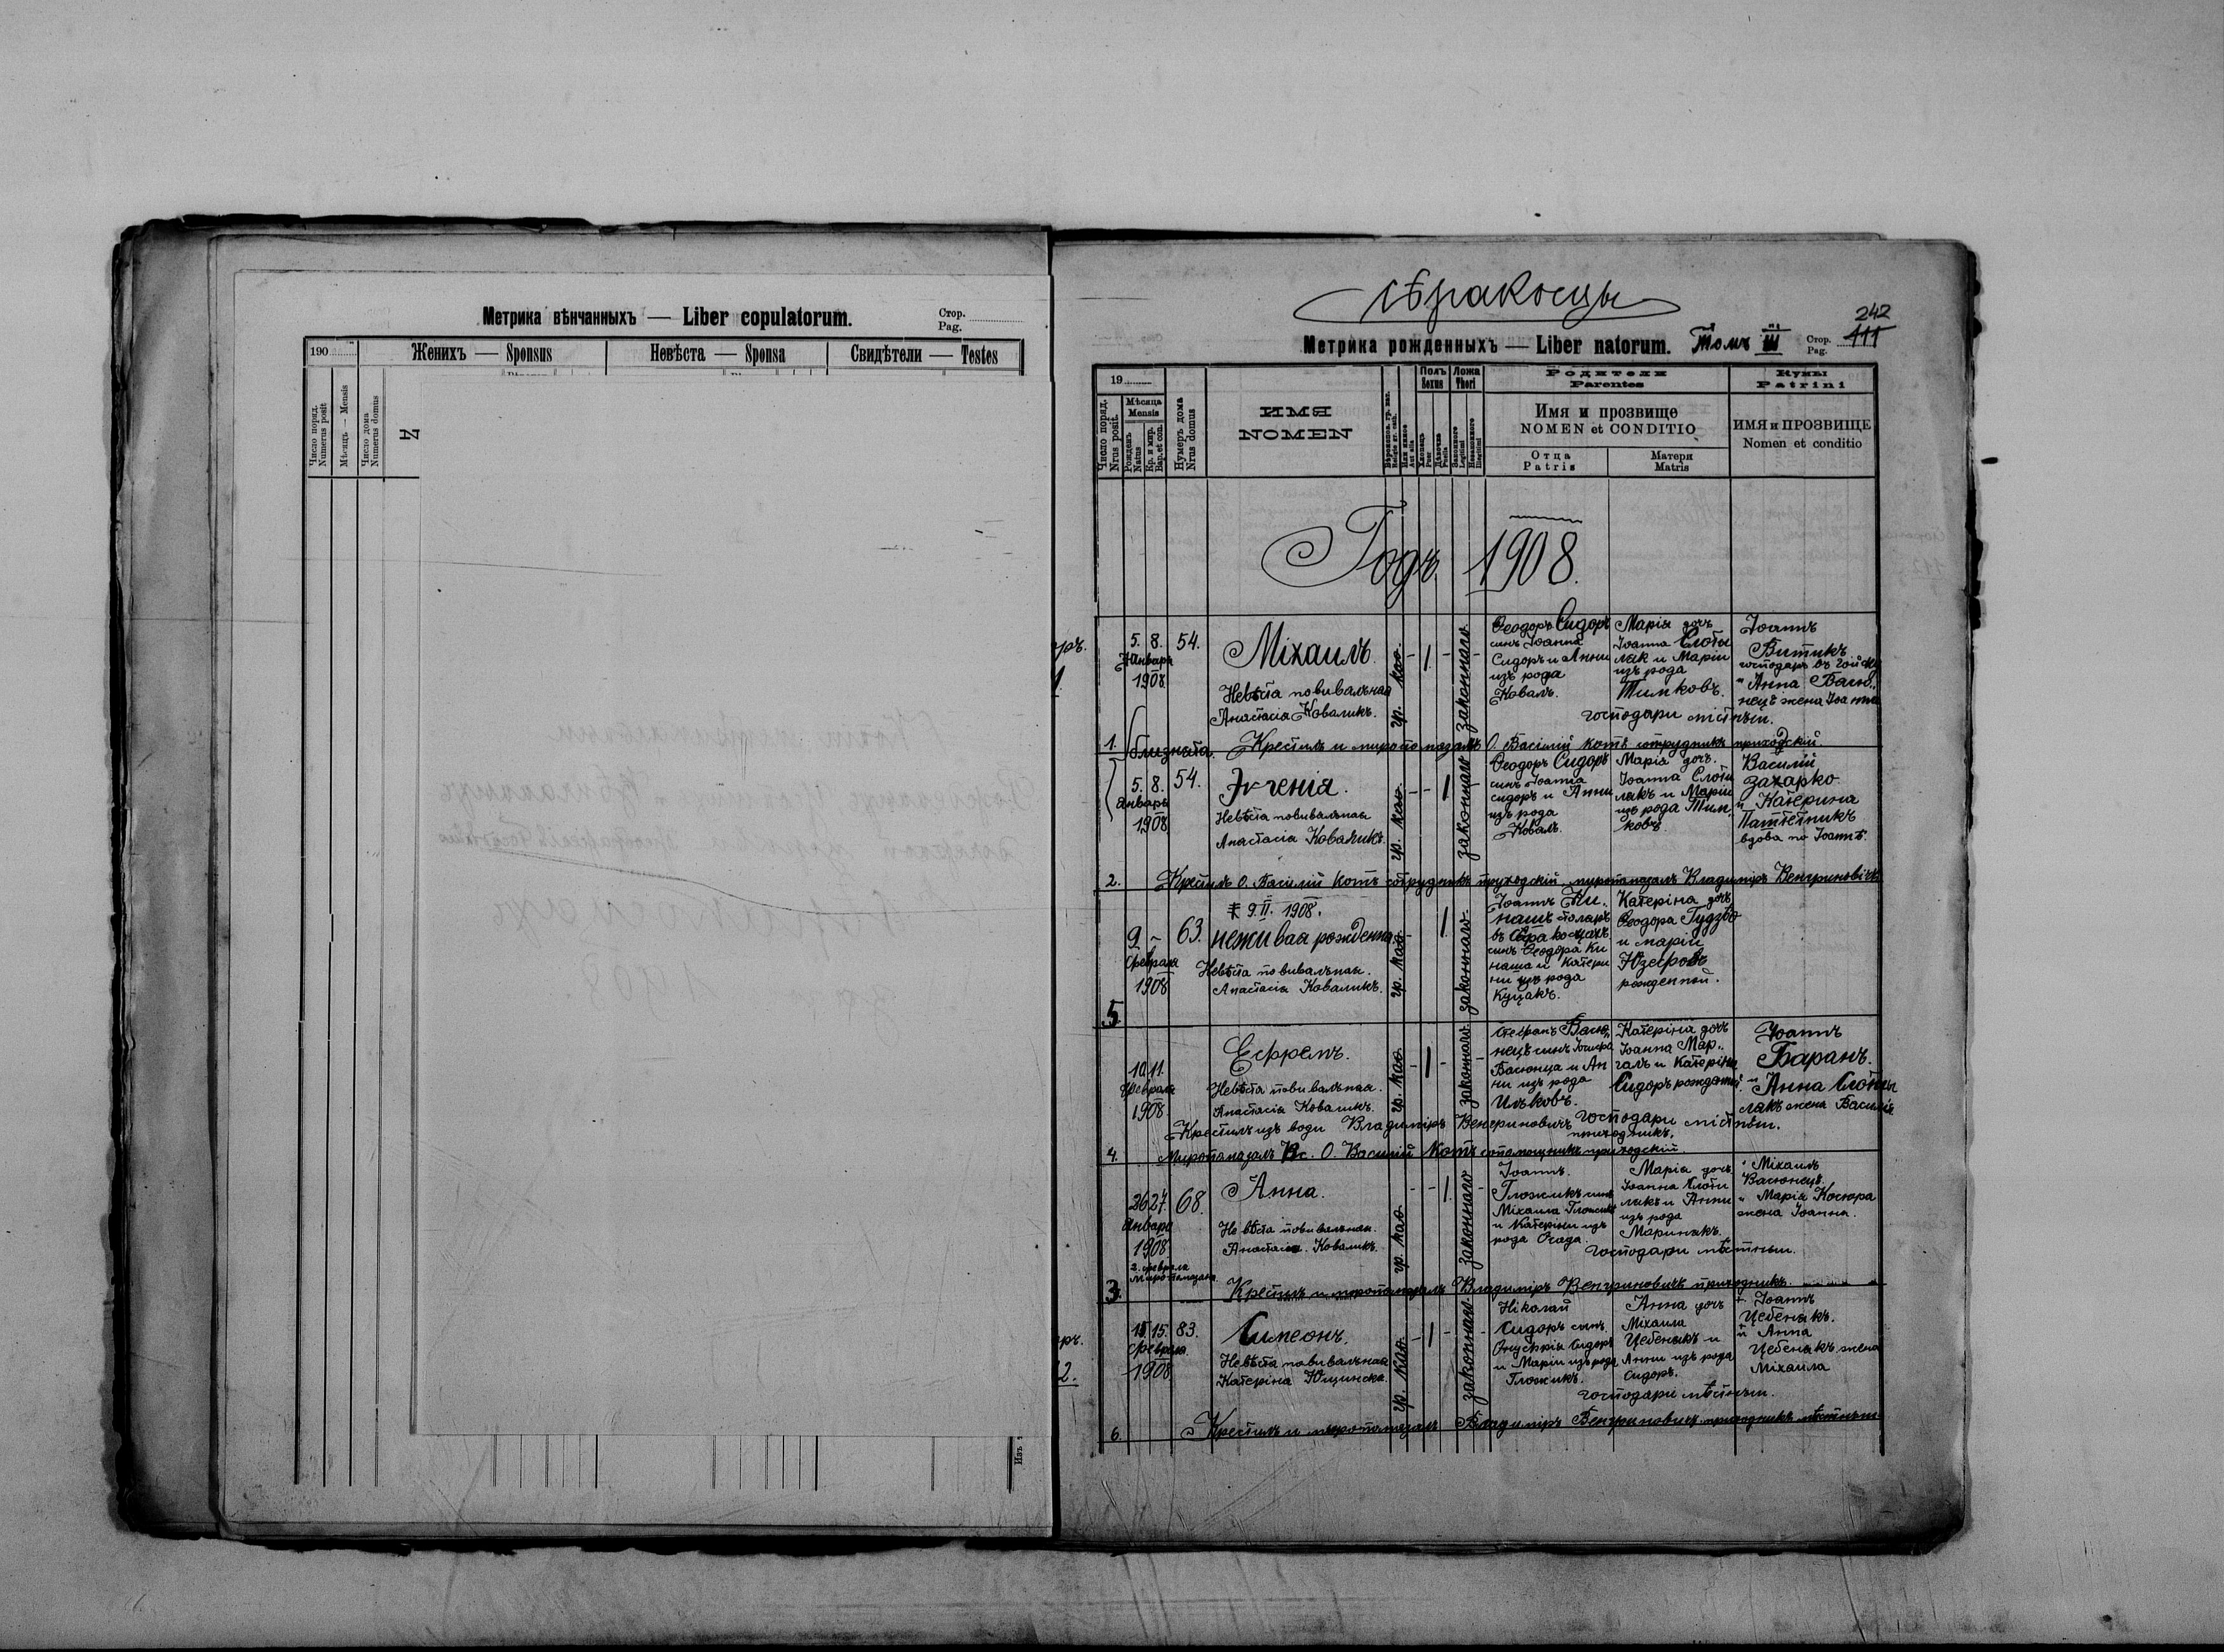 Метрика вѣнчанныхъ — Liber copulatorum.
Стор.
Pag.
190
Женихъ — Sponsus
Невѣста — Sponsa
Свидѣтели — Testes
Число поряд.
Numerus posit
Мѣсяцъ — Mensis
Число дома
Numerus domus
242
Метрика рожденныхъ — Liber natorum. Томъ III
Стор.
Pag.
111
19
Число поряд.
Nrus posit.
Мѣсяца
Mensis
Рожденъ
Natus
Кр. и мир.
Bap. et con.
Нумеръ дома
Nrus domus
ИМЯ
NOMEN
Полъ
Sexus
Ложа
Thori
Хлопецъ
Puer
Дѣвочка
Puella
Законного
Legitimi
Незаконного
Illegitimi
Родители
Parentes
Имя и прозвище
NOMEN et CONDITIO
Отца
Patris
Матери
Matris
Кумы
Patrini
ИМЯ и ПРОЗВИЩЕ
Nomen et conditio
Годъ 1908.
1.
5. 8.
Января
1908
54.
Міхаилъ.
Невѣста повивальная
Анастасія Коваликъ.
гр. као.
1
законнаго
Ѳеодоръ Сидоръ
синъ Іоанна
Сидоръ и Анни
изъ рода
Коваль.
Марія дочь
Іоанна Слоти
лак и Маріи
изъ рода
Тимковъ.
господари містныи.
Іоаннъ
Витикъ
господаръ
Анна Васю
нецъ жена Іоанна
близнята. Крестилъ и миропомазалъ О. Василій Котъ сотрудникъ приходскій.
2.
5. 8.
Январь
1908
54.
Невѣста повивальная
Анастасія Коваликъ.
гр. као.
1
законнаго
Ѳеодоръ Сидоръ
синъ Іоанна
Сидоръ и Анни
изъ рода
Коваль.
Марія доч.
Іоанна Слоти
лакъ и Маріи
изъ рода Тим
ковъ.
Василій
Захарко
и Катерина
вдова по Іоаннѣ.
Крестилъ О. Василій Котъ сотрудникъ приходскій миропомазалъ Владиміръ Венгриновичъ
5
9 –
Февраля
1908
63.
9. II. 1908.
неживая рожденна
Невѣста повивальная.
Анастасія Коваликъ.
гр. као.
1
законнаго
Іоаннъ Ки
нашъ столяръ
синъ Ѳеодора Ки
наша и Катери
ни изъ рода
Куцакъ.
Катеріна дочь
Ѳеодора Гудзьо
и Маріи
Юзефовъ
рожденной.
4.
10 11.
Февраля
1908.
Ефремъ.
Невѣста повивальная.
Анастасія Коваликъ.
гр. као.
1
законнаго
Стефанъ Васю
нецъ синъ Іосифа
Васюнца и Ан
ни изъ рода
Ильковъ.
Катеріна дочь
Іоанна Мар
галъ и Катеріни
Сидоръ рожденной.
Іоаннъ
Баранъ.
и Анна Слоты
лакъ жена Василія
господари містныи.
Крестилъ изъ води Владиміръ Венгриновичъ
приходникъ.
Миропомазалъ Вс. О. Василій Котъ сопомощникъ приходскій.
3.
26 27.
Января
1908
2. февраля
миропомазана
68.
Анна.
Невѣста повивальная.
Анастасія Коваликъ.
гр. као.
1
законнаго
Іоаннъ.
Гложикъ синъ
Міхаила Гложикъ
и Катеріни изъ
рода Огада.
Марія доч.
Іоанна Слоти
лакъ и Анни
изъ рода
Маринякъ.
господари мѣстныи.
Міхаилъ
Васюнецъ.
Марія Косюра
жена Іоанна.
Крестилъ и миропомазалъ Владиміръ Венгриновичъ приходникъ.
6.
15. 15.
Февраля.
1908
83.
Симеонъ.
Невѣста повивальная
Катеріна Ющинска.
гр. као.
1
законнаго
Ніколай
Сидоръ синъ.
Онуфрія Сидоръ
и Маріи изъ рода
Гложикъ.
Анна дочь
Міхаила
Цебенякъ и
Анни изъ рода
Сидоръ.
господари мѣстныи.
Іоаннъ
Цебенякъ.
и Анна
Цебенякъ жена
Міхаила
Крестилъ и миропомазалъ Владиміръ Венгриновичъ приходникъ мѣстныи